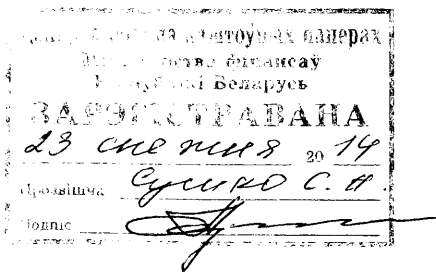 па каштоўных паперах
Міністэрства фінансаў
Рэспублікі Беларусь
ЗАРЭГІСТРАВАНА
23 снежня 20 14
Прозвішча Сушко С. А.
Подпіс